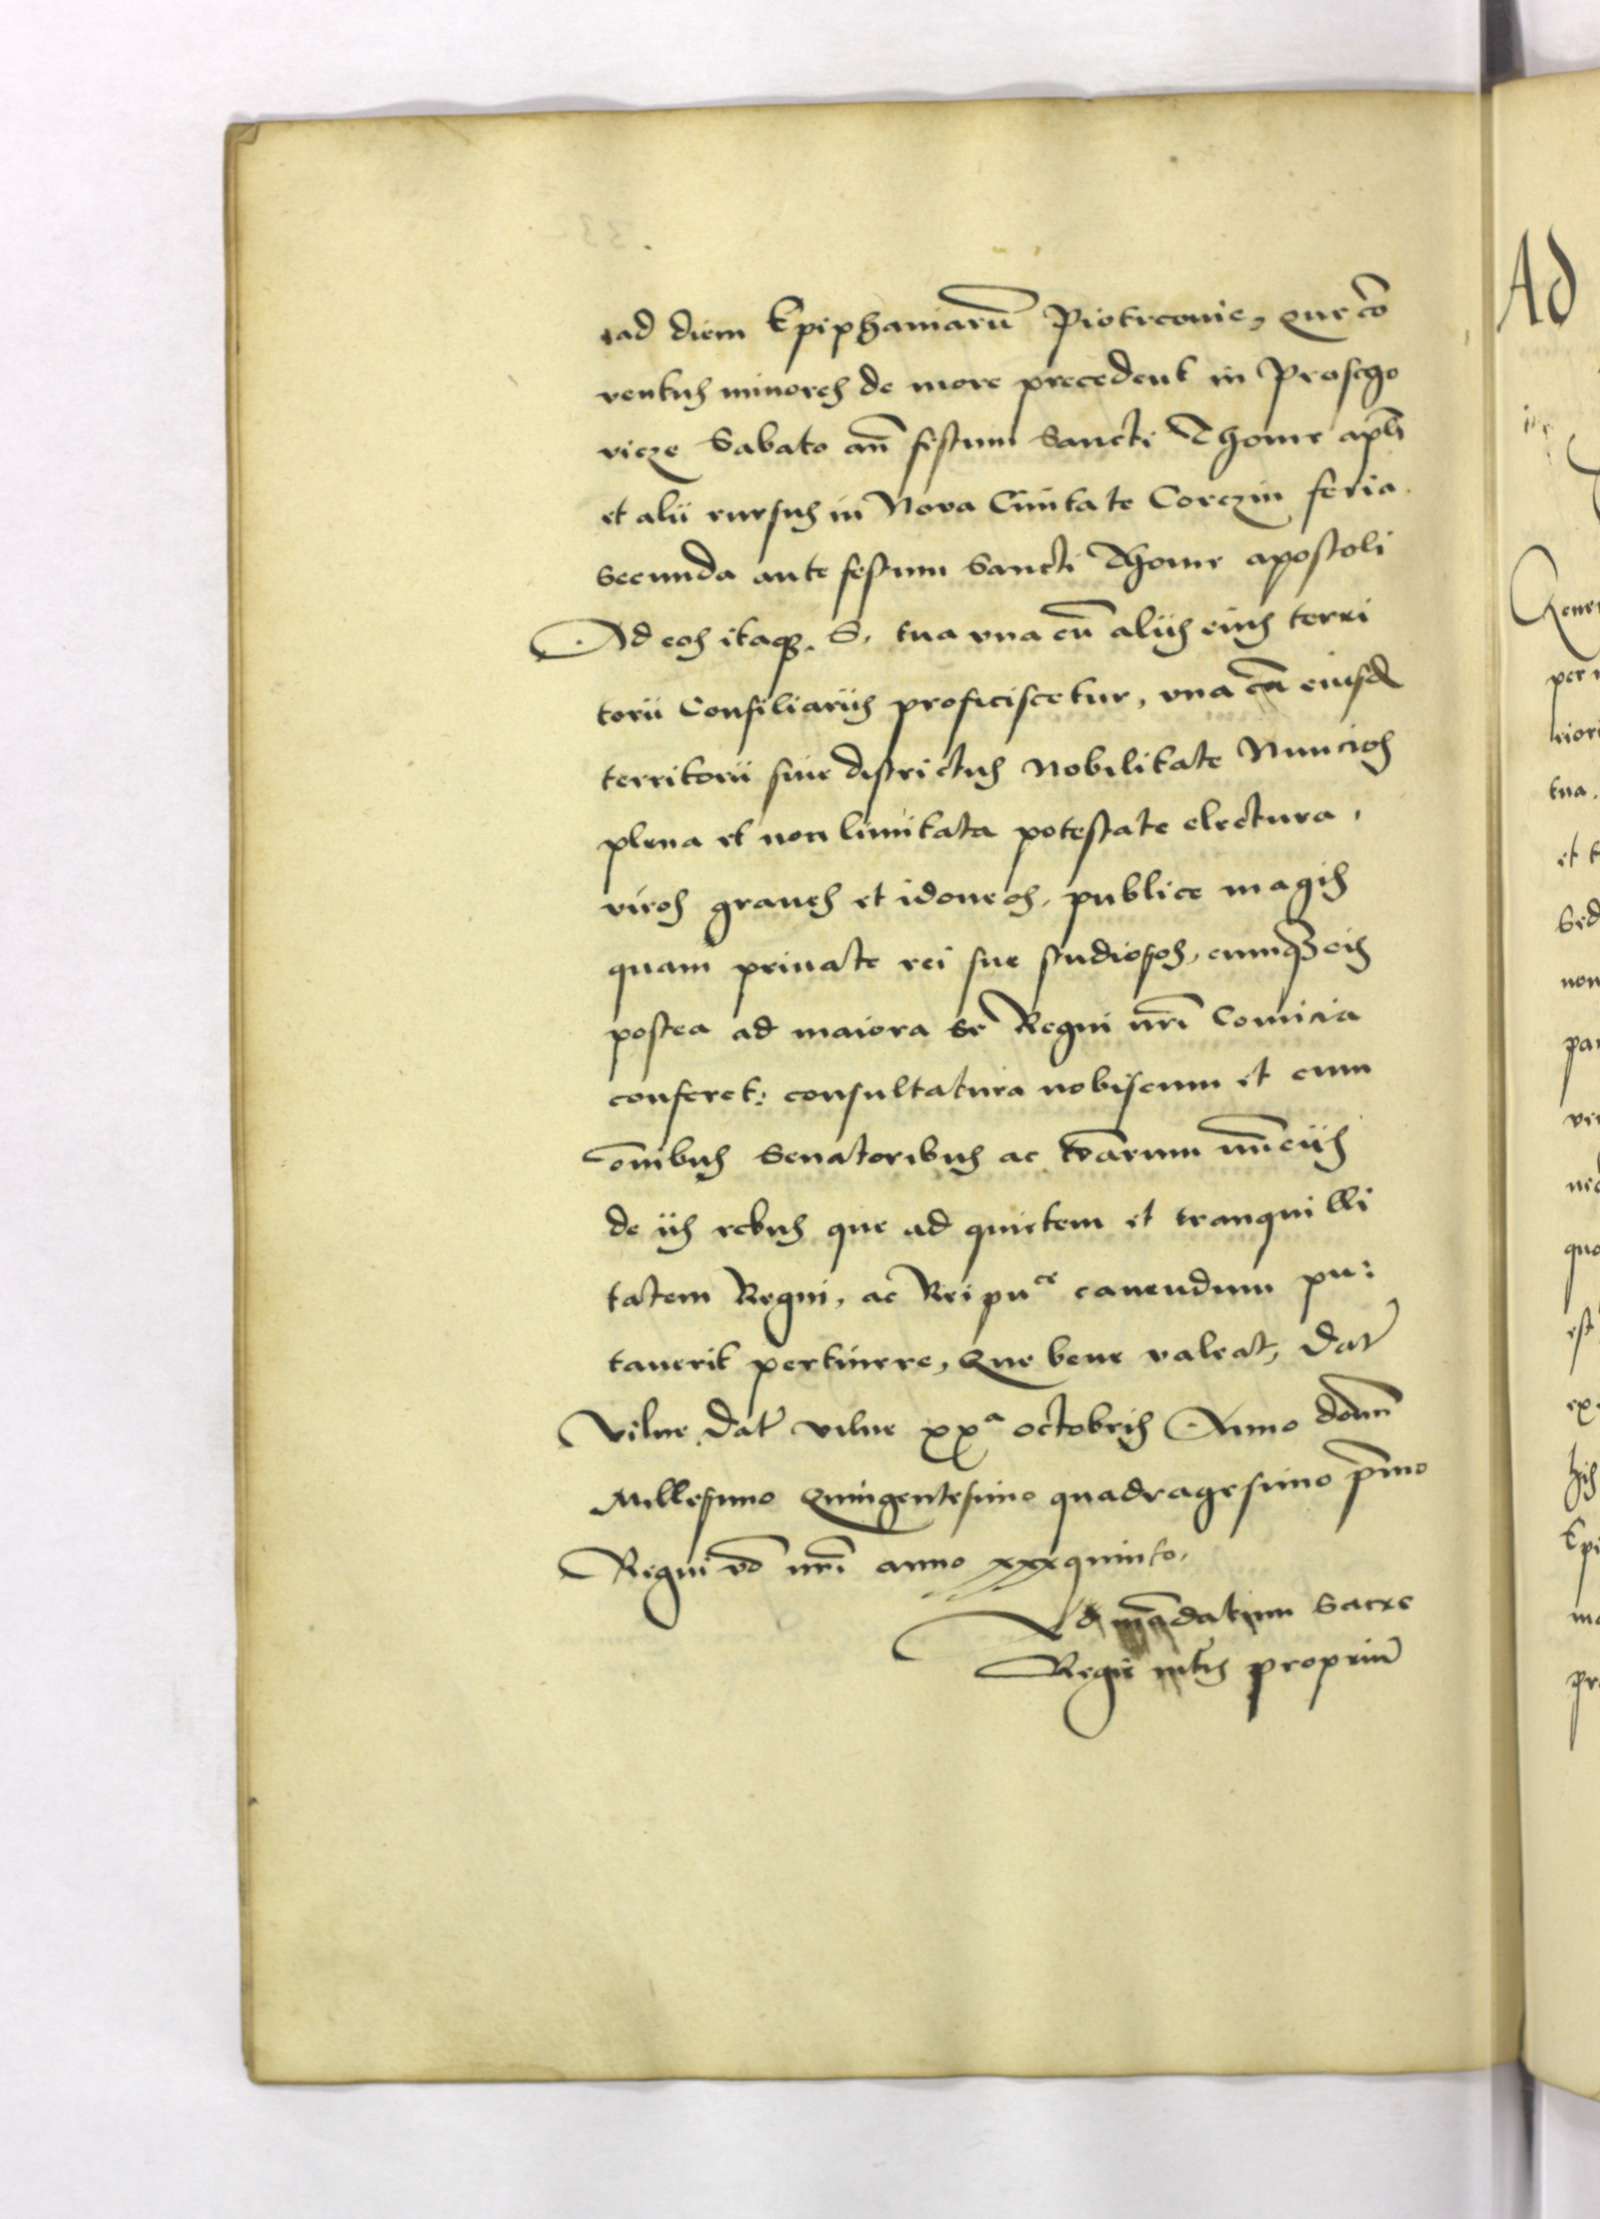 ad diem Epiphaniarū Piotrcovie, que cō
ventus minores de more precedent in Proscho
vicze Sabato an̄ festum Sancti Thome apl̄i
et alii rursus in Nova Civitate Corczin feria
secunda ante festum Sancti Thome apostoli
Ad eos itaqꝫ S. tua vna cū aliis eius terri
torii Consiliariis proficiscetur, vna cū eiusd
territorii siue districtus Nobilitate Nuncios
plena et non limitata potestate electura,
viros graues et idoneos, publice magis
quam priuate rei sue studiosos, cumqꝫ eis
postea ad maiora se Regni nr̄i Comicia
conferet: consultatura nobiscum et cum
om̄ibus Senatoribus ac tr̄arum nūciis
de iis rebus que ad quietem et tranquilli
tatem Regni, ac Rei puce cauendum pu:
tauerit pertinere, Que bene valeat, Dat
Vilne Dat vilne xxa octobris Anno domī
Millesimo Quingentesimo quadragesimo p̄mo
Regni v̄o nr̄i anno xxxquinto.
Ad mādatum Sacre
Regie mt̄is propriū
Ad